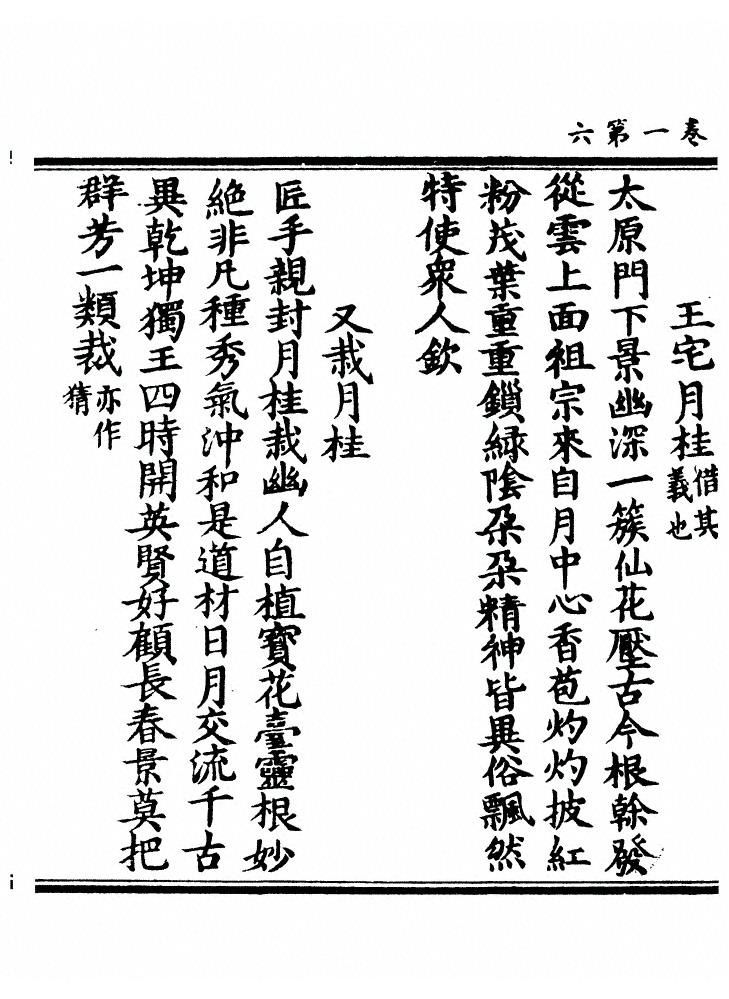 六第一卷
王宅月桂借其義也
太原門下景幽深一簇仙花壓古今根榦發
從雲上面祖宗來自月中心香苞灼灼披紅
粉茂葉重重鎖綠陰朶朶精神皆異俗飄然
特使衆人欽
又栽月桂
匠手親封月桂栽幽人自植寶花臺靈根妙
絶非凡種秀氣沖和是道材日月交流千古
異乾坤獨王四時開英賢好顧長春景莫把
群芳一類裁亦作猜